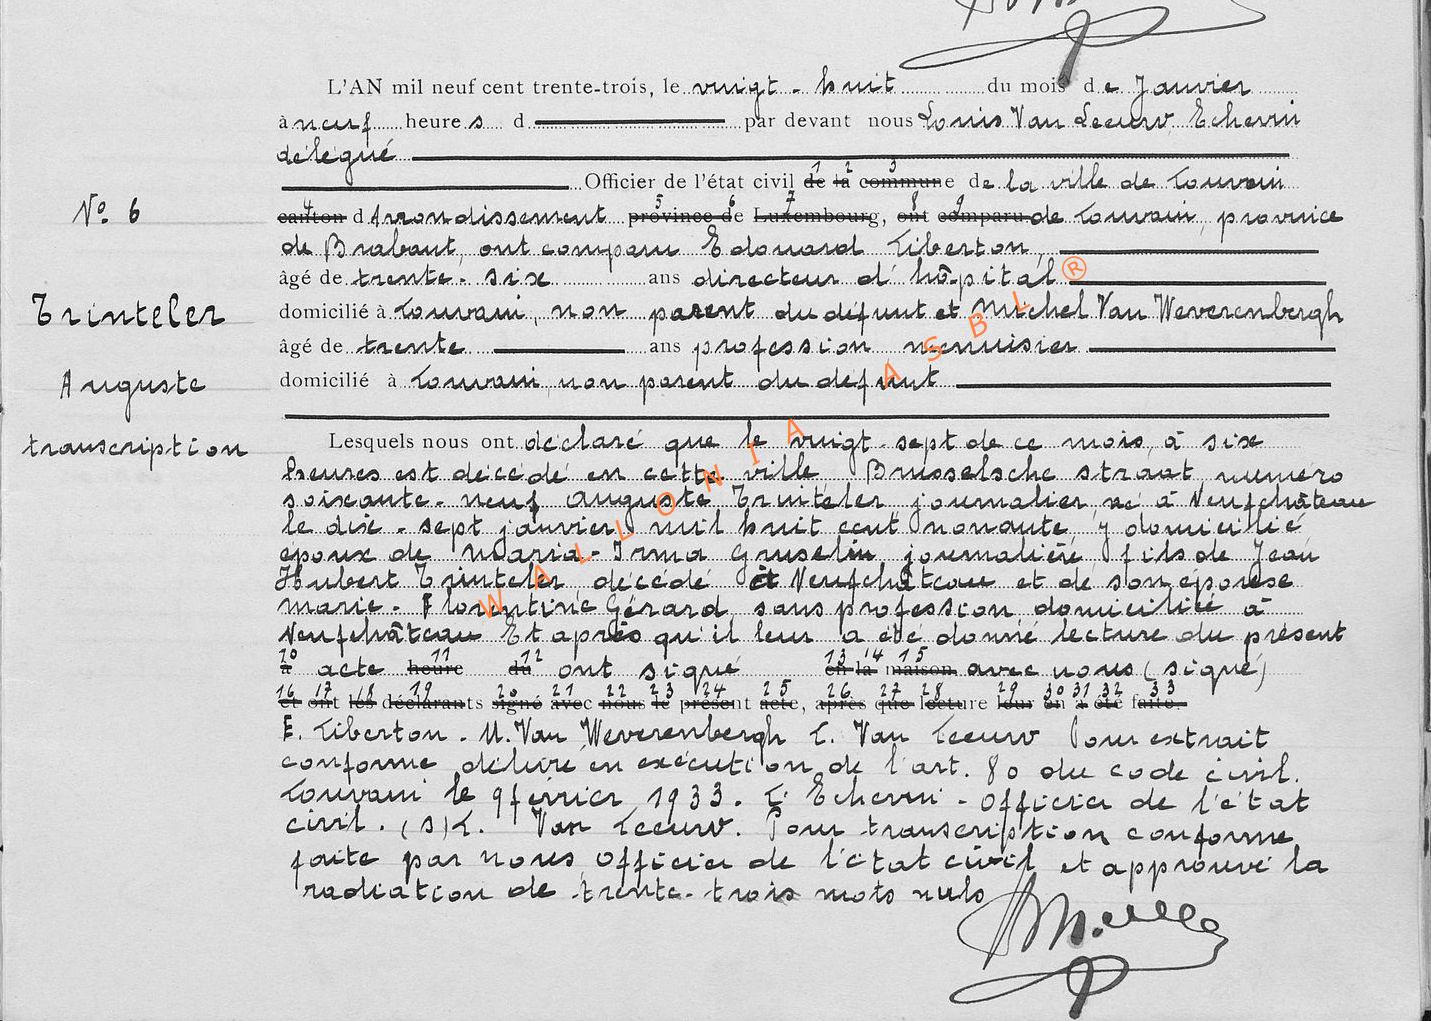 L'AN mil neuf cent trente-trois, le vingt-huit du mois de Janvier
à neuf heures d par devant nous Louis Van Leeuw, Echevin
délégué
Officier de l'état civil de la commune de la ville de Louvain
N° 6
canton d'Arrondissement province de Luxembourg, ont comparu de Louvain, province
de Brabant, ont comparu Edouard Liberton,
âgé de trente-six ans directeur d'hôpital
Trinteler
domicilié à Louvain, non parent du défunt et Michel Van Weverenbergh
âgé de trente ans profession menuisier
Auguste
domicilié à Louvain, non parent du défunt
transcription
Lesquels nous ont déclaré que le vingt-sept de ce mois, à six
heures est décédé en cette ville Brusselsche straat, numéro
soixante-neuf Auguste Trinteler journalier, né à Neufchâteau
le dix-sept janvier mil huit cent nonante, y domicilié
époux de Maria-Irma Gruselin journalière, fils de Jean
Hubert Trinteler décédé à Neufchâteau et de son épouse
Marie-Florentine Gérard sans profession domiciliée à
Neufchâteau Et après qu'il leur a été donné lecture du présent
10 11 12 13 14 15
à acte heure du ont signé en la maison avec nous (signé)
16 17 18 19 20 21 22 23 24 25 26 27 28 29 30 31 32 33
et ont les déclarants signé avec nous le présent acte, après que lecture leur en a été faite.
E. Liberton - M. Van Weverenbergh L. Van Leeuw Pour extrait
conforme délivré en exécution de l'art. 80 du code civil.
Louvain le 9 février 1933. L'Echevin - Officier de l'état
civil. (s) L. Van Leeuw. Pour transcription conforme
faite par nous Officier de l'état civil et approuvé la
radiation de trente-trois mots nuls
WALLONIA ASBL ®